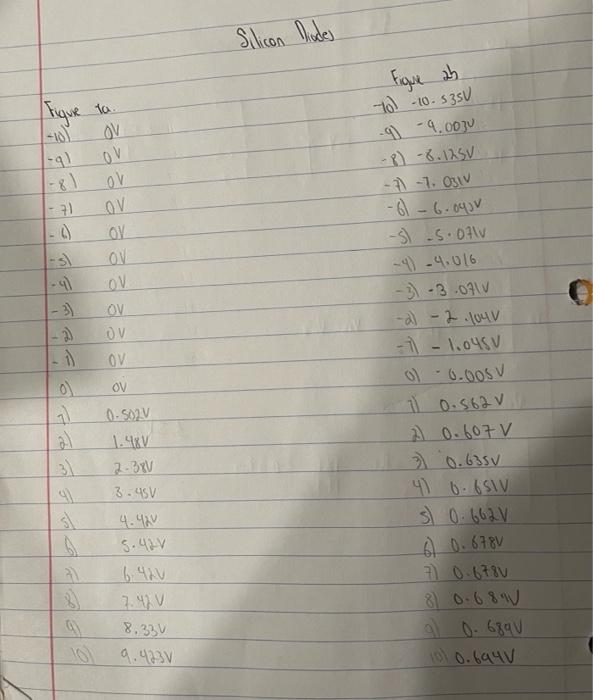 Silicon Diodes
Figure 1a.
-10) 0V
-9) 0V
-8) 0V
-7) 0V
-6) 0V
-5) 0V
-4) 0V
-3) 0V
-2) 0V
-1) 0V
0) 0V
1) 0.502V
2) 1.48V
3) 2.38V
4) 3.45V
5) 4.42V
6) 5.42V
7) 6.42V
8) 7.42V
9) 8.33V
10) 9.423V
Figure 2b
-10) -10.535V
-9) -9.003V
-8) -8.125V
-7) -7.031V
-6) -6.043V
-5) -5.071V
-4) -4.016
-3) -3.071V
-2) -2.104V
-1) -1.045V
0) -0.005V
1) 0.562V
2) 0.607V
3) 0.635V
4) 0.651V
5) 0.662V
6) 0.678V
7) 0.678V
8) 0.689V
9) 0.689V
10) 0.694V